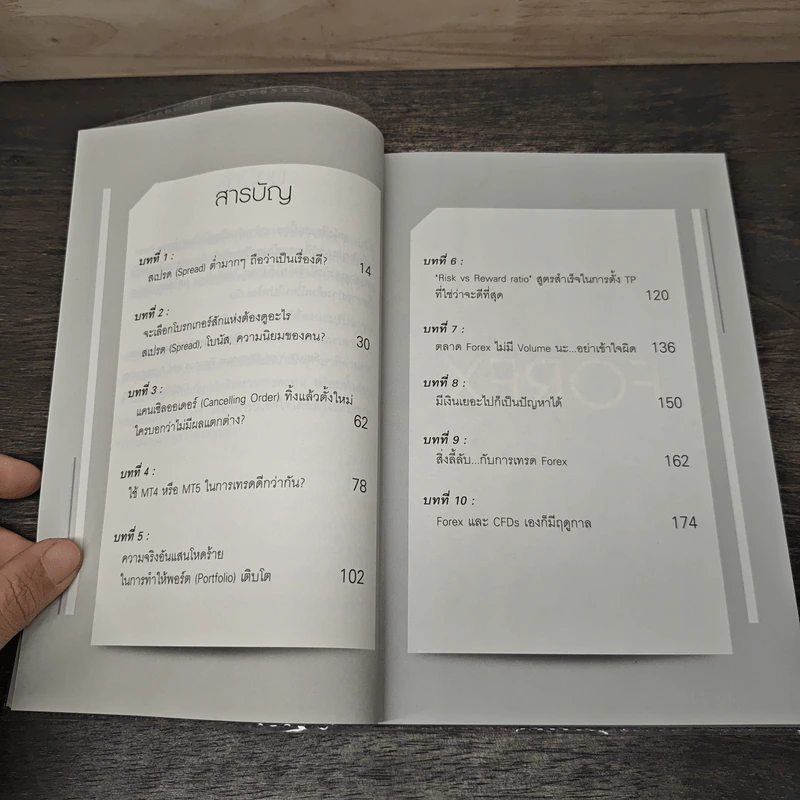 สารบัญ
บทที่ 1 :
สเปรด (Spread) ต่ำมากๆ ถือว่าเป็นเรื่องดี? 14
บทที่ 2 :
จะเลือกโบรกเกอร์สักแห่งต้องดูอะไร
สเปรด (Spread), โบนัส, ความนิยมของคน? 30
บทที่ 3 :
แคนเซิลออเดอร์ (Cancelling Order) ทิ้งแล้วตั้งใหม่
ใครบอกว่าไม่มีผลแตกต่าง? 62
บทที่ 4 :
ใช้ MT4 หรือ MT5 ในการเทรดดีกว่ากัน? 78
บทที่ 5 :
ความจริงอันแสนโหดร้าย
ในการทำให้พอร์ต (Portfolio) เติบโต 102
บทที่ 6 :
"Risk vs Reward ratio" สูตรสำเร็จในการตั้ง TP
ที่ใช่ว่าจะดีที่สุด 120
บทที่ 7 :
ตลาด Forex ไม่มี Volume นะ...อย่าเข้าใจผิด 136
บทที่ 8 :
มีเงินเยอะไปก็เป็นปัญหาได้ 150
บทที่ 9 :
สิ่งลี้ลับ...กับการเทรด Forex 162
บทที่ 10 :
Forex และ CFDs เองก็มีฤดูกาล 174